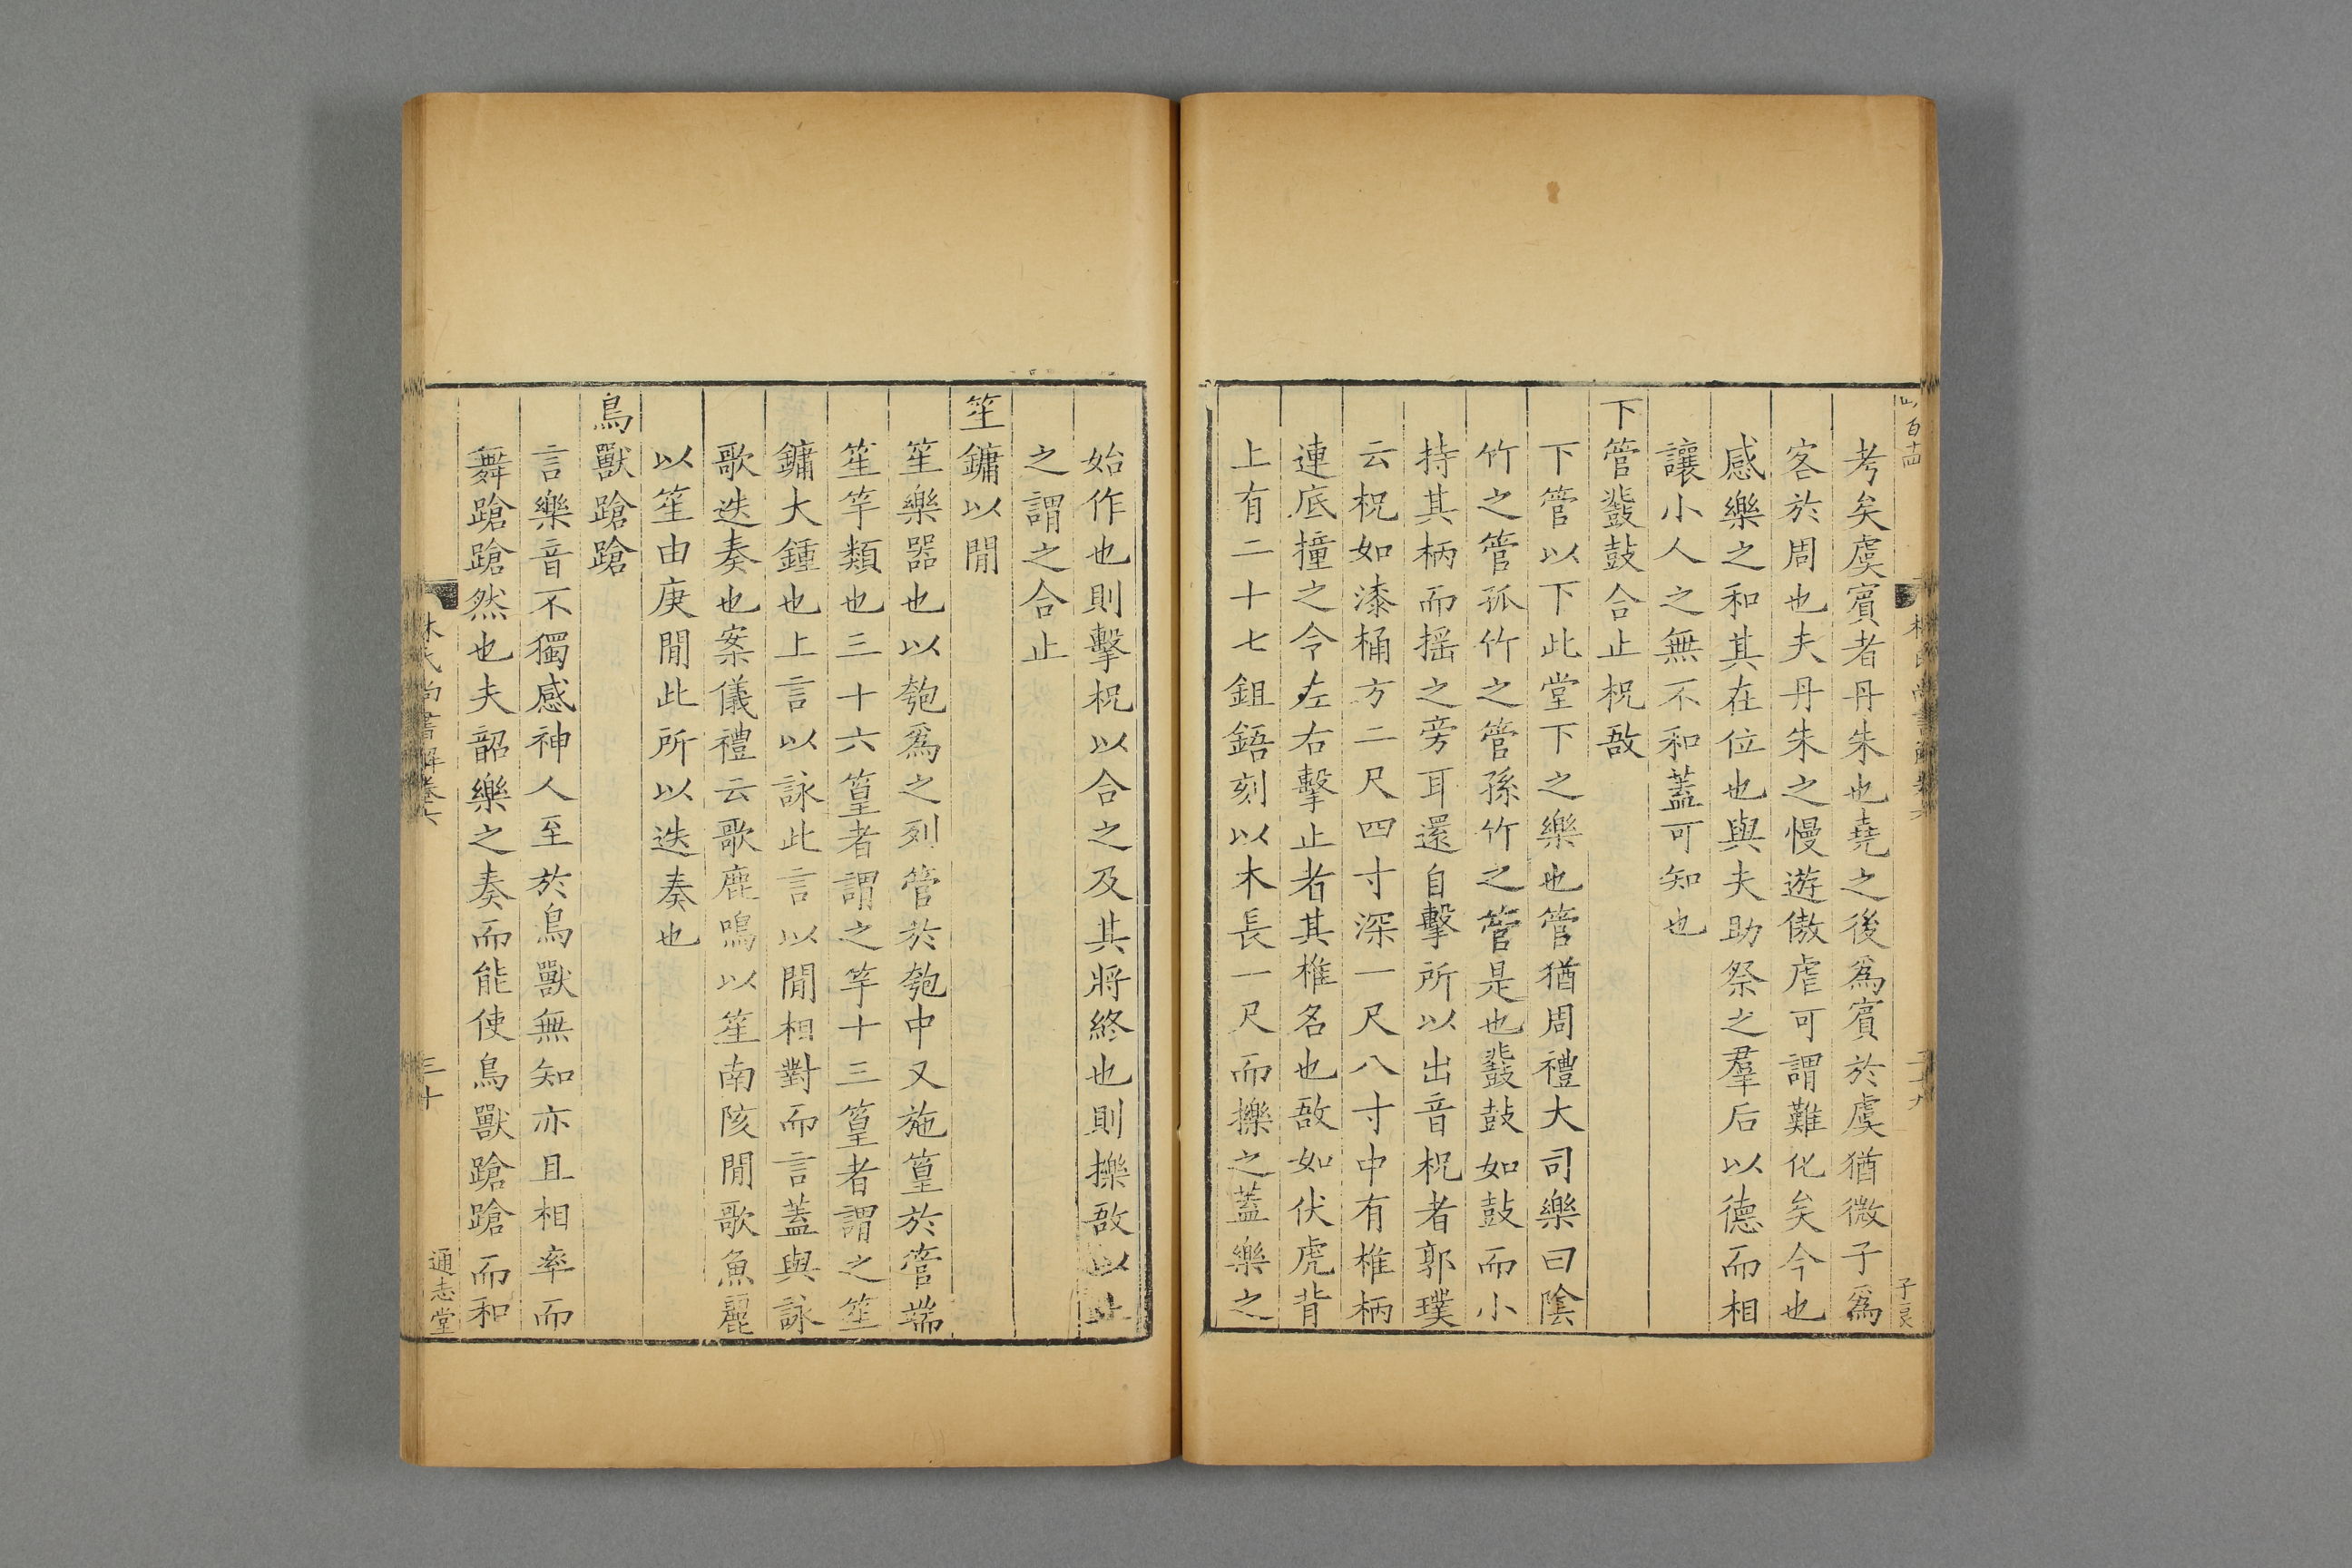 考矣虞賓者丹朱也堯之後爲賓於虞猶微子爲
客於周也夫丹朱之慢遊傲虐可謂難化矣今也
感樂之和其在位也與夫助祭之羣后以德而相
讓小人之無不和蓋可知也
下管鼗鼓合止柷敔
下管以下此堂下之樂也管猶周禮大司樂曰陰
竹之管孤竹之管孫竹之管是也鼗鼓如鼓而小
持其柄而摇之旁耳還自擊所以出音柷者郭璞
云柷如漆桶方二尺四寸深一尺八寸中有椎柄
連底撞之令左右擊止者其椎名也敔如伏虎背
上有二十七鉏鋙刻以木長一尺而擽之蓋樂之
始作也則擊柷以合之及其將終也則擽敔以止
之謂之合止
笙鏞以閒
笙樂器也以匏爲之列管於匏中又施簧於管端
笙竽類也三十六簧者謂之竽十三簧者謂之笙
鏞大鍾也上言以詠此言以閒相對而言蓋與詠
歌迭奏也案儀禮云歌鹿鳴以笙南陔閒歌魚麗
以笙由庚閒此所以迭奏也
鳥獸蹌蹌
言樂音不獨感神人至於鳥獸無知亦且相率而
舞蹌蹌然也夫韶樂之奏而能使鳥獸蹌蹌而和
林氏尚書解卷六
三十
通志堂